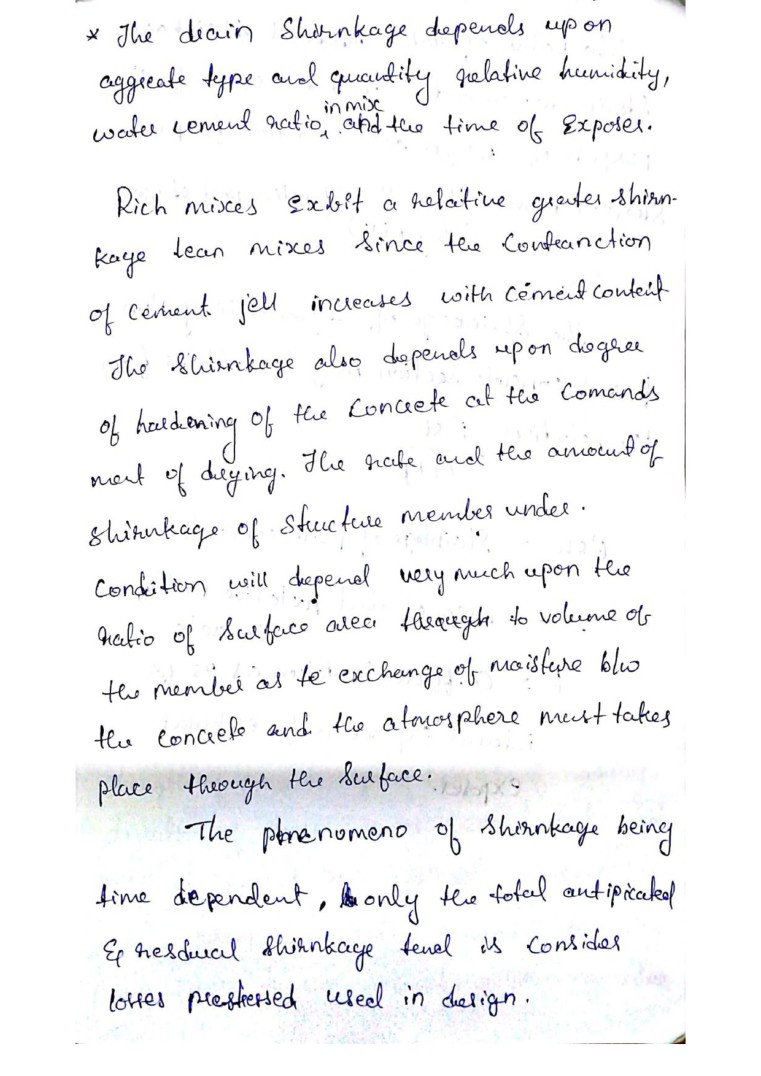 * The drain Shirnkage depends upon
aggreate type and quantity relative humidity,
in mix
water cement ratio, and the time of Exposer.
Rich mixes Exbit a relative greater shirn-
kage lean mixes Since the Contranction
of cement jell increases with cement content
The Shirnkage also depends upon degree
of hardening of the Concrete at the Comands
ment of drying. The rate and the amount of
Shirnkage of Structure member under.
Condition will depend very much upon the
ratio of Surface area through to volume of
the member as te exchange of moisture b/w
the concrete and the atmosphere must takes
place through the Surface.
The phenomeno of Shirnkage being
time dependent, only the total antipicated
& resdual Shirnkage tend is consider
losses prestressed used in design.